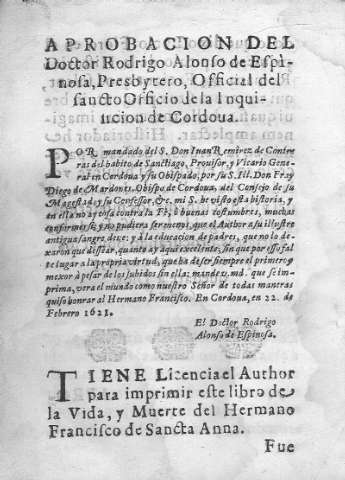 APROBACION DEL
Doctor Rodrigo Alonso de Espi-
nosa, Presbytero, Official del
sancto Officio de la Inqui-
sicion de Cordoua.
POR mandado del S. Don Iuan Remirez de Contre
ras del habito de Sanctiago, Prouisor, y Vicario Gene
ral en Cordoua y su Obispado, por su S. Ill. Don Fray
Diego de Mardones, Obispo de Cordoua, del Consejo de su
Magestad y su Confessor, &c. mi S. he visto esta historia, y
en ella no ay cosa contra la Fè, ò buenas costumbres, muchas
conformes si, y no pudiera ser menos, que el Author a su illustre
antigua sangre deue: y à la educacion de padres, que no lo de
xaron que dissear, quanto ay aqui excelente, sin que por esso fal
te lugar a la propria virtud, que ha de ser siempre el primero y
mexor à pesar de los subidos sin ella: mande v. md. que se im
prima, vera el mundo como nuestro Señor de todas maneras
quiso honrar al Hermano Francisco. En Cordoua, en 22. de
Febrero 1621.
El Doctor Rodrigo
Alonso de Espinosa.
TIENE Licencia el Author
para imprimir este libro de
la Vida, y Muerte del Hermano
Francisco de Sancta Anna.
Fue